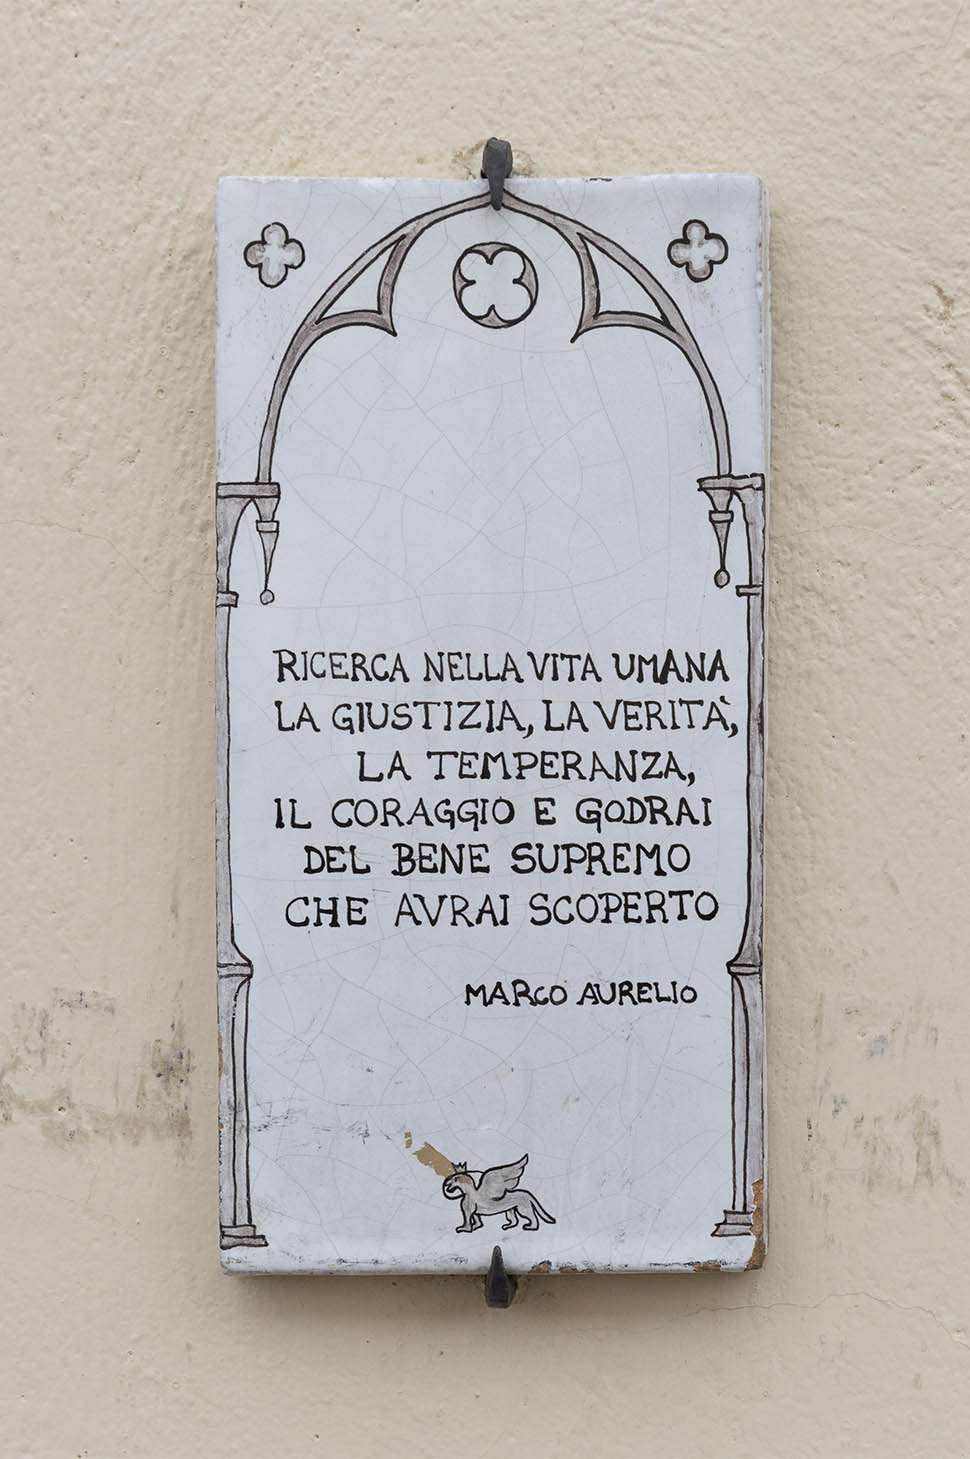 RICERCA NELLA VITA UMANA
LA GIUSTIZIA, LA VERITÀ,
LA TEMPERANZA,
IL CORAGGIO E GODRAI
DEL BENE SUPREMO
CHE AVRAI SCOPERTO
MARCO AURELIO